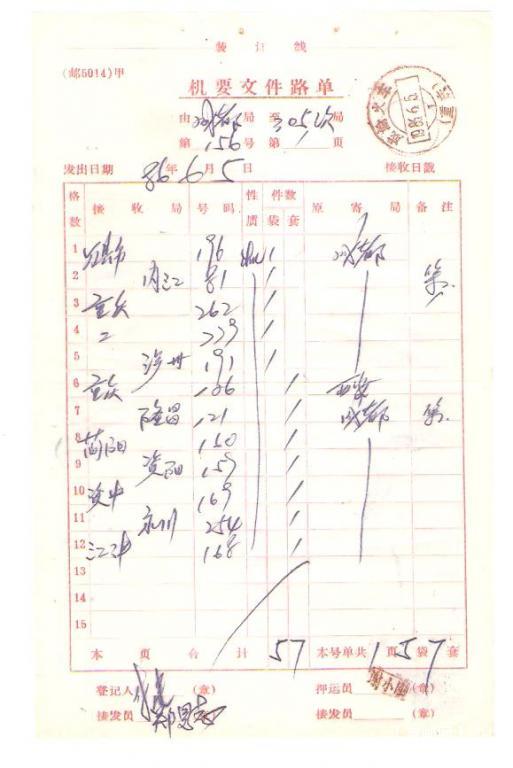 装 订 线
(邮5014)甲
机要文件路单
由 成都 局 至 305次 局
第 156 号 第 1 页
发出日期 86年 6月 5日 接收日戳
格数 接收局 号码 性质 件数 袋 套 原寄局 备注
1 196 1 成都
2 内江 81 1
3 重庆 262 1
4 〃 239 1
5 泸州 191 1
6 重庆 186 1 西安
7 隆昌 121 1 成都
8 简阳 150 1
9 资阳 159 1
10 资中 169 1
11 永川 254 1
12 江津 168 1
13
14
15
本页合计 57 本号单共 1 页 57 袋 套
登记人 (章) 押运员 (章)
接发员 (章) 接发员 (章)